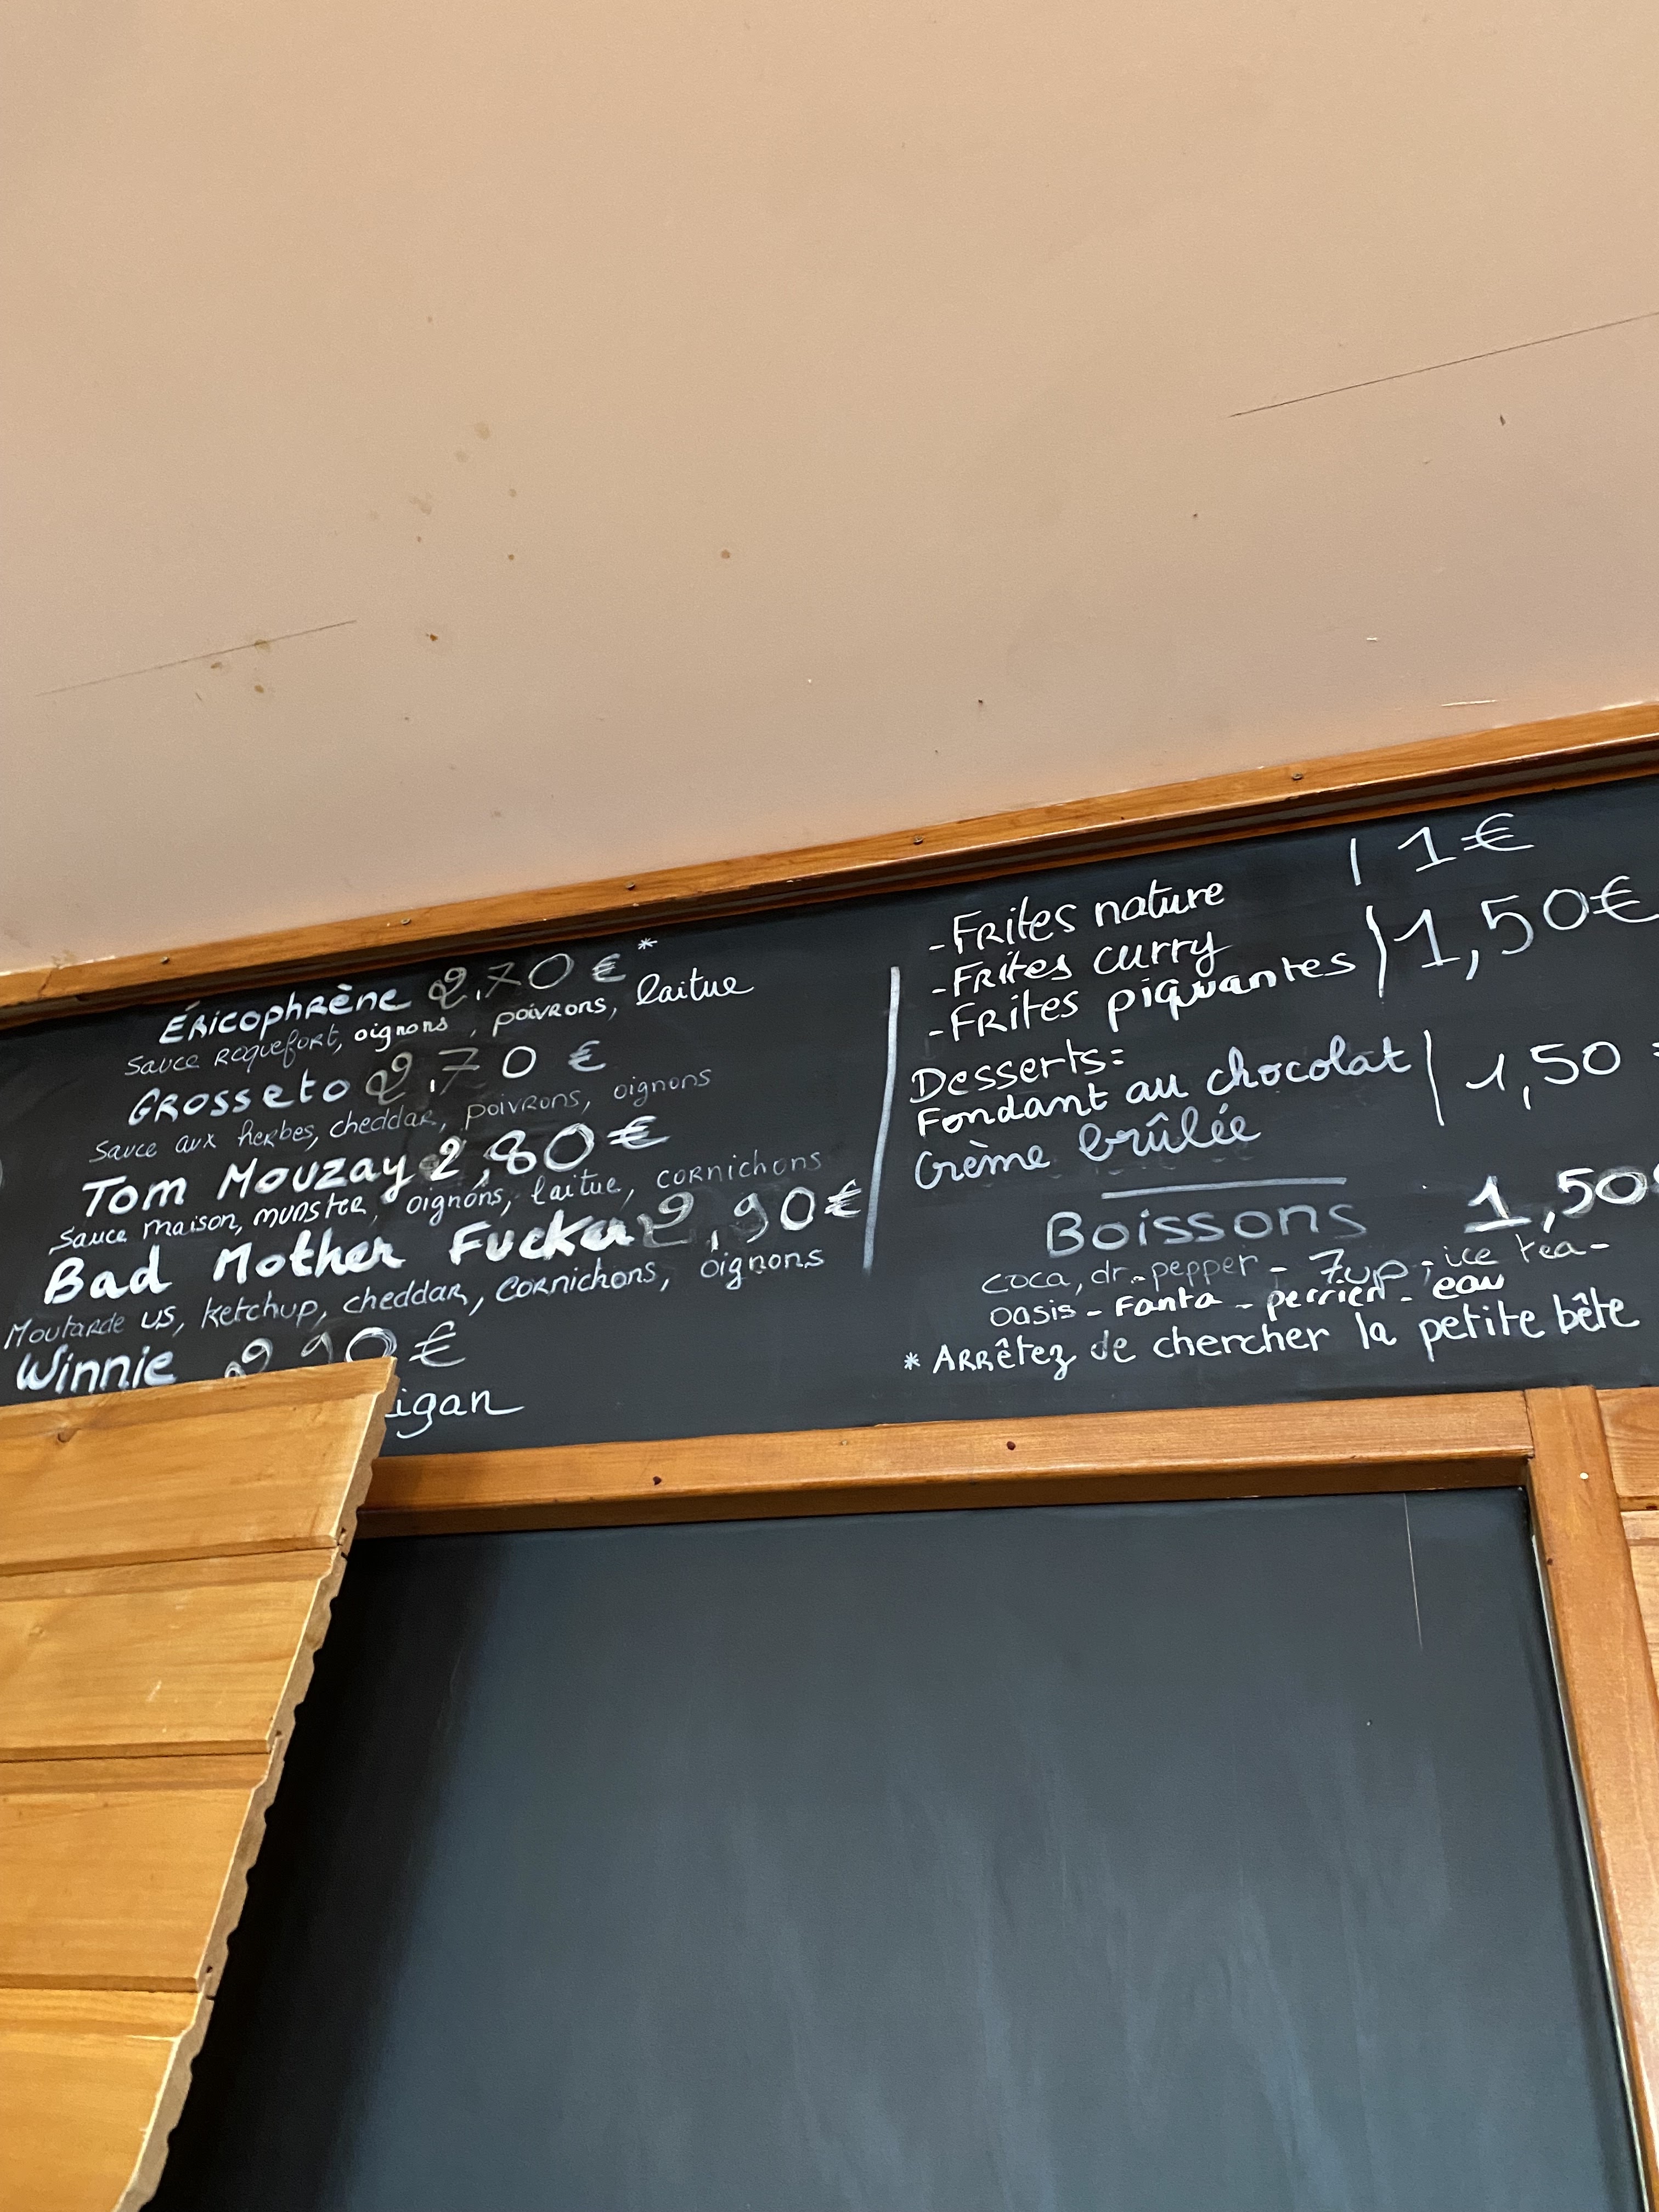 Éricophrène 2,70 €*
Sauce Roquefort, oignons, poivrons, laitue
Grosseto 2,70 €
Sauce aux herbes, cheddar, poivrons, oignons
Tom Mouzay 2,80 €
Sauce maison, munster, oignons, laitue, cornichons
Bad Mother Fucker 2,90 €
Moutarde US, ketchup, cheddar, cornichons, oignons
Winnie 2,90 €
igan
- Frites nature | 1 €
- Frites curry
- Frites piquantes | 1,50 €
Desserts:
Fondant au chocolat | 1,50
Crème brûlée
Boissons 1,50
coca, dr. pepper - 7up - ice tea -
oasis - Fanta - perrier - eau
* Arrêtez de chercher la petite bête